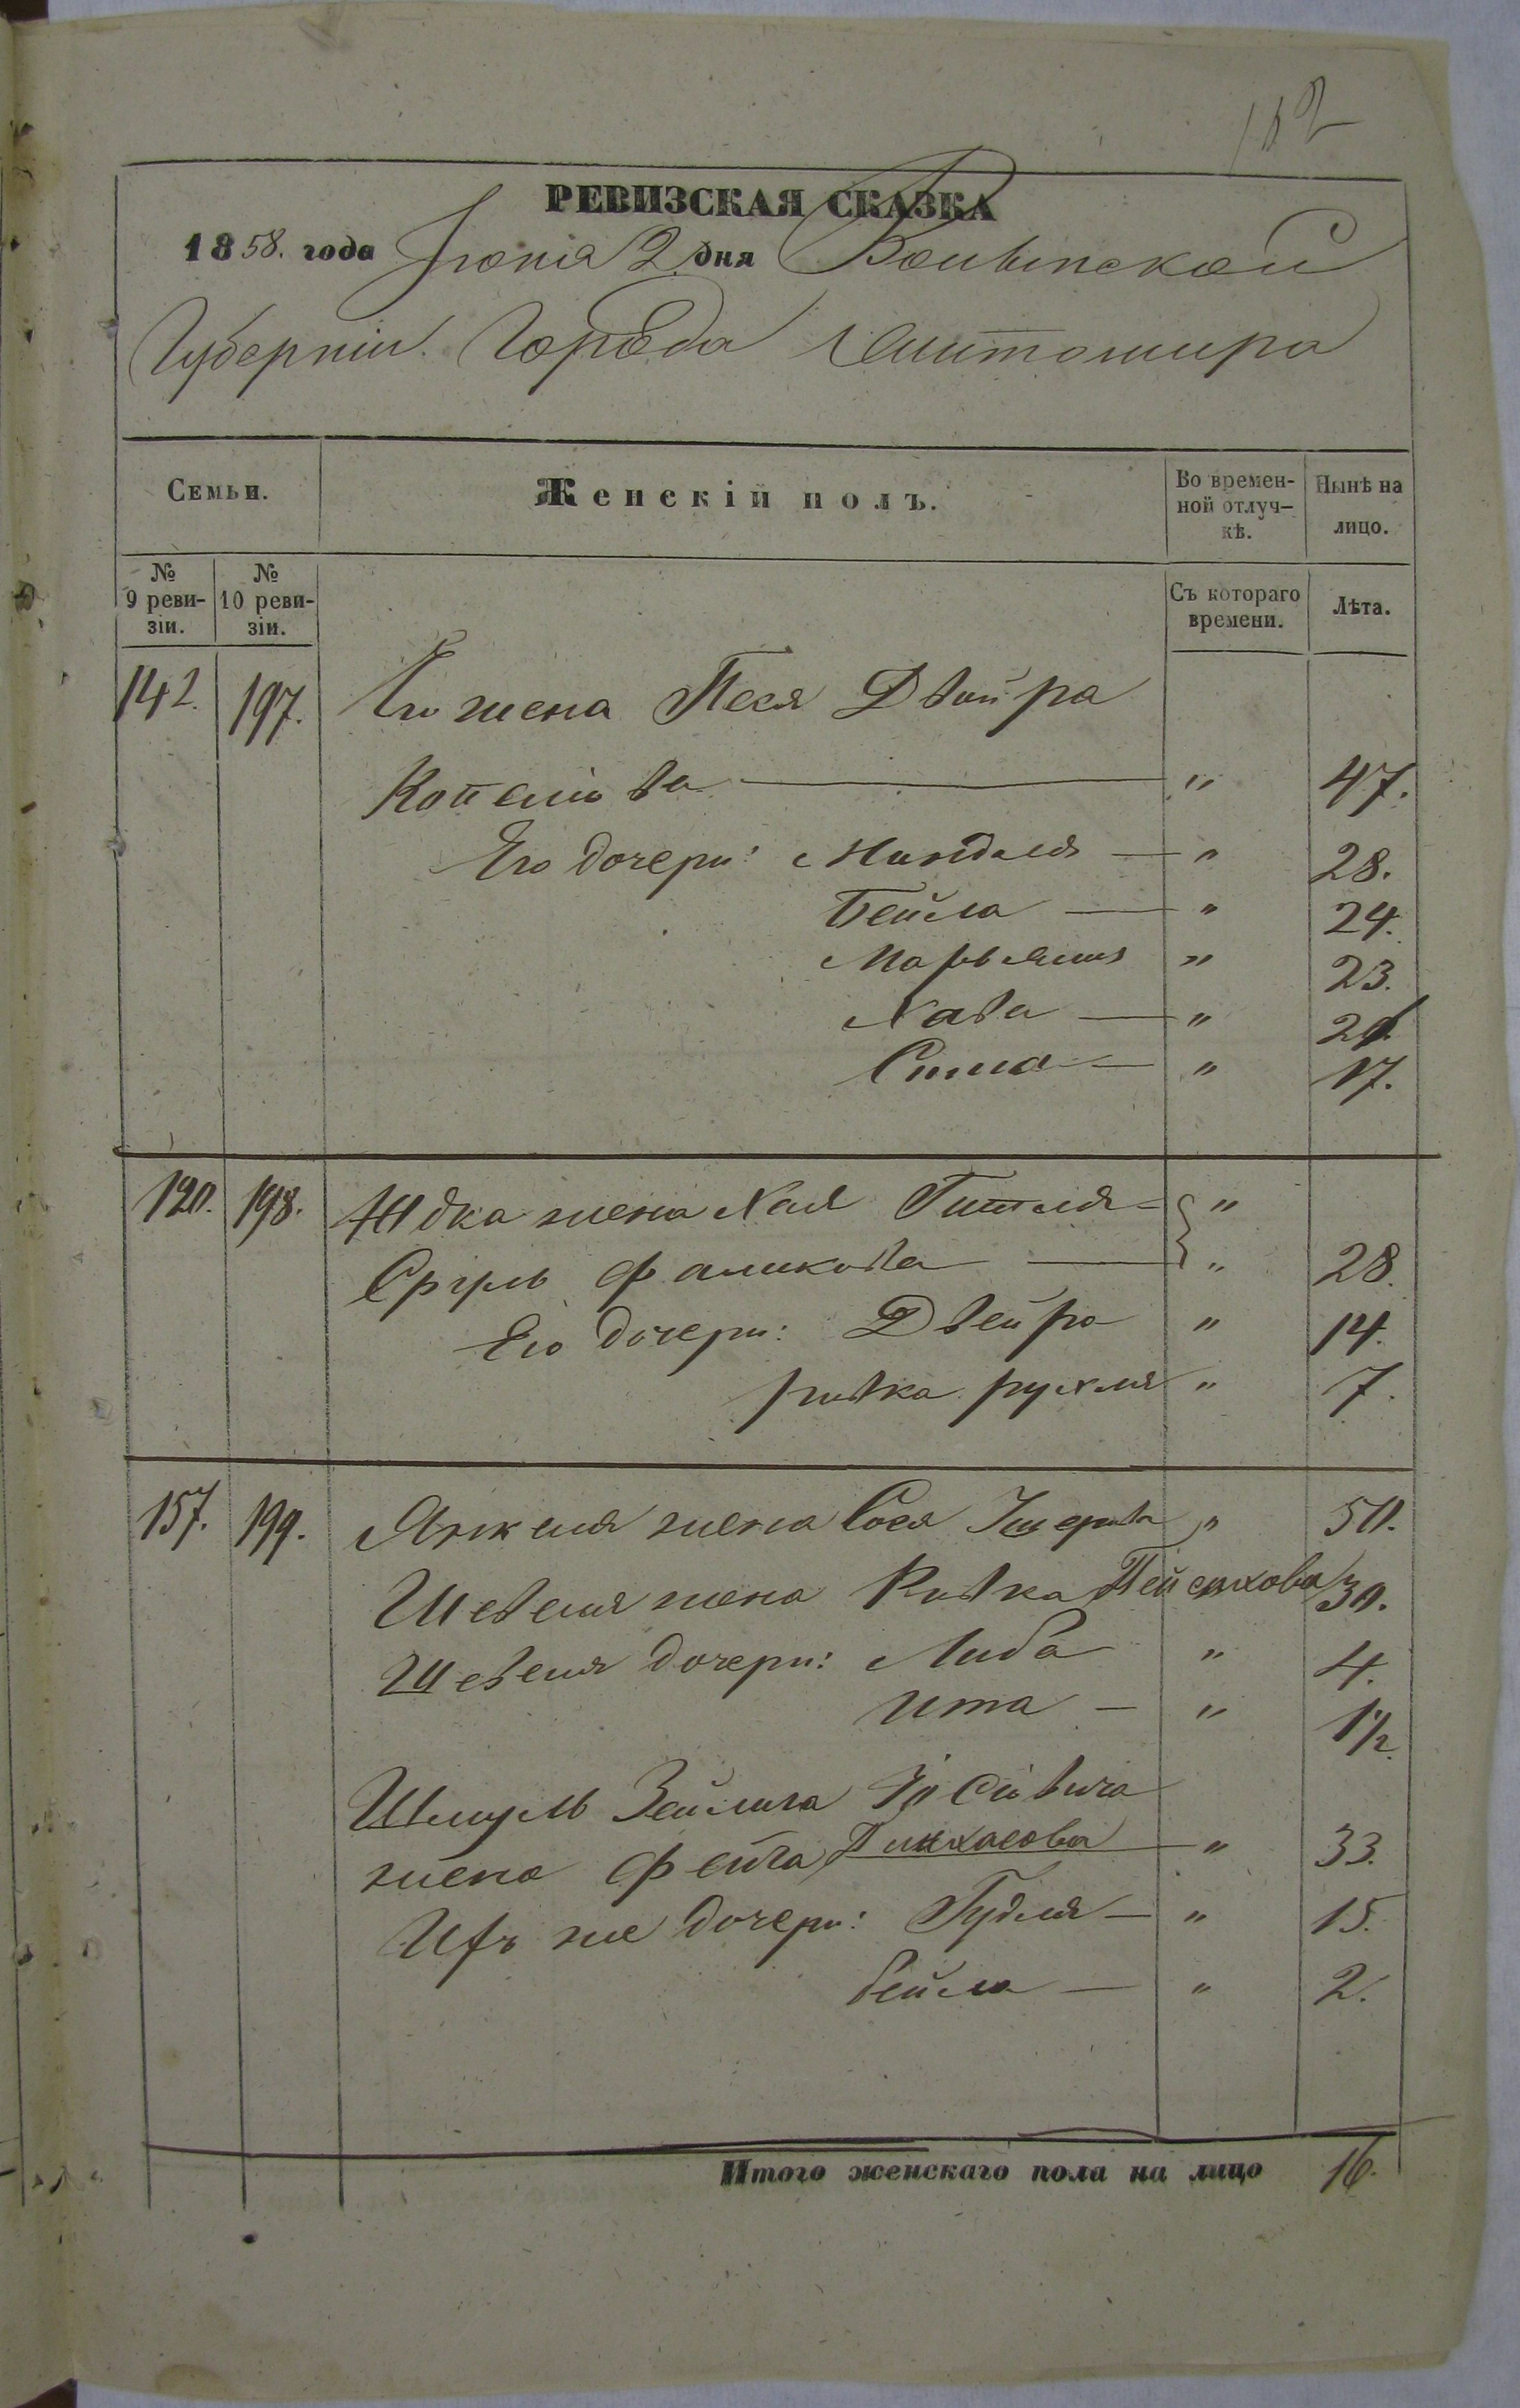 182
РЕВИЗСКАЯ СКАЗКА
1858. года Іюнія 2 дня Волынской
Губерніи. Города Житомира
Семьи.
Женскій полъ.
Во времен-
ной отлуч-
кѣ.
Нынѣ на
лицо.
№
9 реви-
зіи.
№
10 реви-
зіи.
Съ котораго
времени.
Лѣта.
142. 197. Его жена Песя Двойра
Копелiова — " 47.
Его дочери: Миндля — " 28.
Бейла — " 24.
Марьям " 23.
Хава — " 21.
Сима — " 17.
120. 198. Юдка жена Хая Гитля - "
Сруль Фаликова — " 28.
Его дочери: Двейра " 14.
ривка рухля " 7.
157. 199. Янкеля жена Сося " 50.
Шевеля жена Ривка Пейсахова 30.
Шевеля дочери: Либа " 4.
Ита — " 1 1/2.
Шмуль Зейлига Іосiовича
жена Фейга Пинхасова — " 33.
Ихъ же дочери: Гудля — " 15.
бейла — " 2.
Итого женскаго пола на лицо 16.